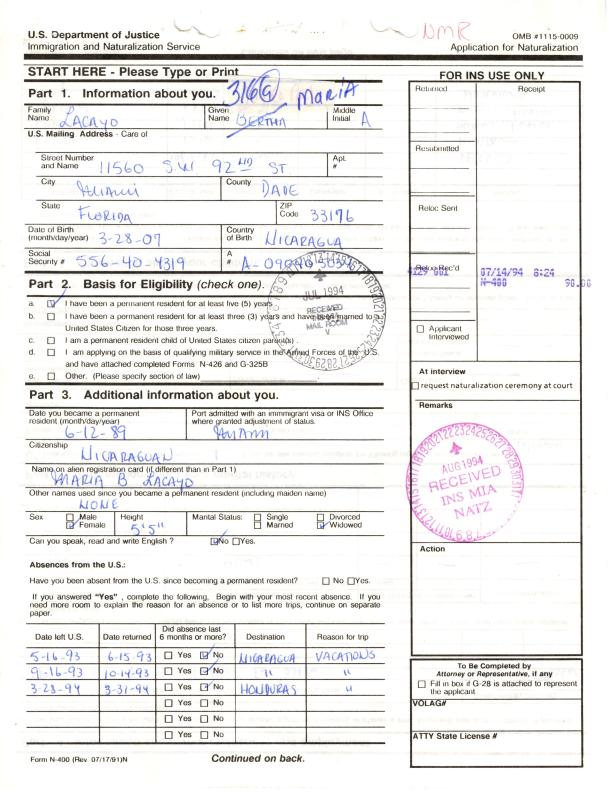 NMR
U.S. Department of Justice
Immigration and Naturalization Service
OMB #1115-0009
Application for Naturalization
START HERE - Please Type or Print
FOR INS USE ONLY
Part 1. Information about you.
316
MARIA
Family Name LACAYO
Given Name BERTHA
Middle Initial A
U.S. Mailing Address - Care of
Street Number and Name 11560 S.W. 92 ND ST
Apt. #
City MIAMI
County DADE
State FLORIDA
ZIP Code 33176
Date of Birth (month/day/year) 3-28-07
Country of Birth NICARAGUA
Social Security # 556-40-4319
A # A-
Part 2. Basis for Eligibility (check one).
a. I have been a permanent resident for at least five (5) years
b. I have been a permanent resident for at least three (3) years and have been married to a
United States Citizen for those three years.
c. I am a permanent resident child of United States citizen parent(s)
d. I am applying on the basis of qualifying military service in the Armed Forces of the U.S.
and have attached completed Forms N-426 and G-325B
e. Other. (Please specify section of law)
JUL 1994
RECEIVED
MAIL ROOM
V
Part 3. Additional information about you.
Date you became a permanent resident (month/day/year) 6-12-89
Port admitted with an immigrant visa or INS Office where granted adjustment of status.
MIAMI
Citizenship
NICARAGUAN
Name on alien registration card (if different than in Part 1)
MARIA B LACAYO
Other names used since you became a permanent resident (including maiden name)
NONE
Sex Male Female
Height 5'5"
Marital Status: Single Married Divorced Widowed
Can you speak, read and write English ? No Yes.
Absences from the U.S.:
Have you been absent from the U.S. since becoming a permanent resident? No Yes.
If you answered "Yes" , complete the following, Begin with your most recent absence. If you
need more room to explain the reason for an absence or to list more trips, continue on separate
paper.
Date left U.S. Date returned Did absence last 6 months or more? Destination Reason for trip
5-16-93 6-15-93 Yes No NICARAGUA VACATIONS
9-16-93 10-14-93 Yes No " "
3-23-94 3-31-94 Yes No HONDURAS "
Yes No
Yes No
Yes No
Form N-400 (Rev. 07/17/91)N
Continued on back.
Returned
Receipt
Resubmitted
Reloc Sent
Reloc Rec'd
07/14/94 8:24
N-400 90.00
Applicant Interviewed
At interview
request naturalization ceremony at court
Remarks
AUG 1994
RECEIVED
INS MIA
NATZ
Action
To Be Completed by
Attorney or Representative, if any
Fill in box if G-28 is attached to represent
the applicant
VOLAG#
ATTY State License #